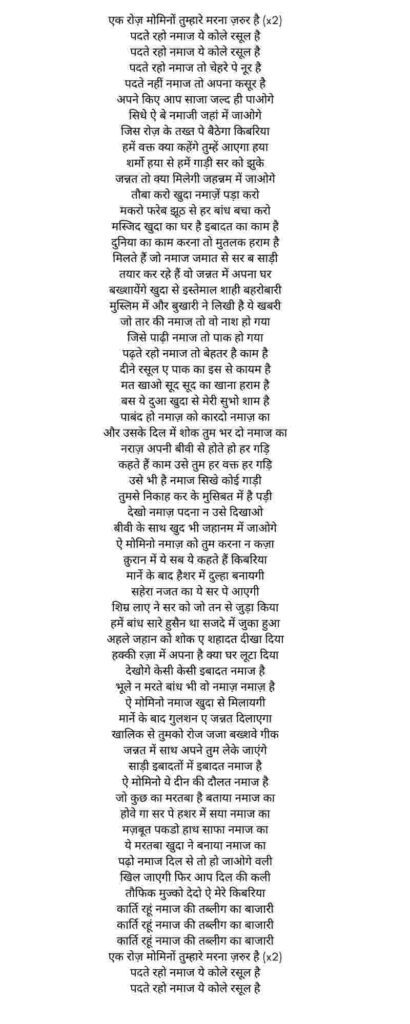 एक रोज़ मोमिनों तुम्हारे मरना ज़रुर है (x2)
पदते रहो नमाज ये कोले रसूल है
पदते रहो नमाज ये कोले रसूल है
पदते रहो नमाज तो चेहरे पे नूर है
पदते नहीं नमाज तो अपना कसूर है
अपने किए आप साजा जल्द ही पाओगे
सिधे ऐ बे नमाजी जहां में जाओगे
जिस रोज़ के तख्त पे बैठेगा किबरिया
हमें वक्त क्या कहेंगे तुम्हें आएगा हया
शर्मो हया से हमें गाड़ी सर को झुके
जन्नत तो क्या मिलेगी जहन्नम में जाओगे
तौबा करो खुदा नमाज़ें पड़ा करो
मकरो फरेब झूठ से हर बांध बचा करो
मस्जिद खुदा का घर है इबादत का काम है
दुनिया का काम करना तो मुतलक हराम है
मिलते हैं जो नमाज जमात से सर ब साड़ी
तयार कर रहे हैं वो जन्नत में अपना घर
बख्शायेंगे खुदा से इस्तेमाल शाही बहरोबारी
मुस्लिम में और बुखारी ने लिखी है ये खबरी
जो तार की नमाज तो वो नाश हो गया
जिसे पाढ़ी नमाज तो पाक हो गया
पढ़ते रहो नमाज तो बेहतर है काम है
दीने रसूल ए पाक का इस से कायम है
मत खाओ सूद सूद का खाना हराम है
बस ये दुआ खुदा से मेरी सुभो शाम है
पाबंद हो नमाज़ को कारदो नमाज़ का
और उसके दिल में शोक तुम भर दो नमाज का
नराज़ अपनी बीवी से होते हो हर गड़ि
कहते हैं काम उसे तुम हर वक्त हर गड़ि
उसे भी है नमाज सिखे कोई गाड़ी
तुमसे निकाह कर के मुसिबत में है पड़ी
देखो नमाज़ पदना न उसे दिखाओ
बीवी के साथ खुद भी जहानम में जाओगे
ऐ मोमिनो नमाज़ को तुम करना न कज़ा
क़ुरान में ये सब ये कहते हैं किबरिया
मार्ने के बाद हैशर में दुल्हा बनायगी
सहेरा नजत का ये सर पे आएगी
शिम्र लाए ने सर को जो तन से जुड़ा किया
हमें बांध सारे हुसैन था सजदे में जुका हुआ
अहले जहान को शोक ए शहादत दीखा दिया
हक्की रज़ा में अपना है क्या घर लूटा दिया
देखोगे केसी केसी इबादत नमाज है
भूले न मरते बांध भी वो नमाज़ नमाज़ है
ऐ मोमिनो नमाज खुदा से मिलायगी
मार्ने के बाद गुलशन ए जन्नत दिलाएगा
खालिक से तुमको रोज जजा बख्शवे गीक
जन्नत में साथ अपने तुम लेके जाएंगे
साड़ी इबादतों में इबादत नमाज है
ऐ मोमिनो ये दीन की दौलत नमाज है
जो कुछ का मरतबा है बताया नमाज का
होवे गा सर पे हशर में सया नमाज का
मज़बूत पकडो हाथ साफा नमाज का
ये मरतबा खुदा ने बनाया नमाज का
पढ़ो नमाज दिल से तो हो जाओगे वली
खिल जाएगी फिर आप दिल की कली
तौफिक मुज्को देदो ऐ मेरे किबरिया
कार्ति रहूं नमाज की तब्लीग का बाजारी
कार्ति रहूं नमाज की तब्लीग का बाजारी
कार्ति रहूं नमाज की तब्लीग का बाजारी
एक रोज़ मोमिनों तुम्हारे मरना ज़रुर है (x2)
पदते रहो नमाज ये कोले रसूल है
पदते रहो नमाज ये कोले रसूल है